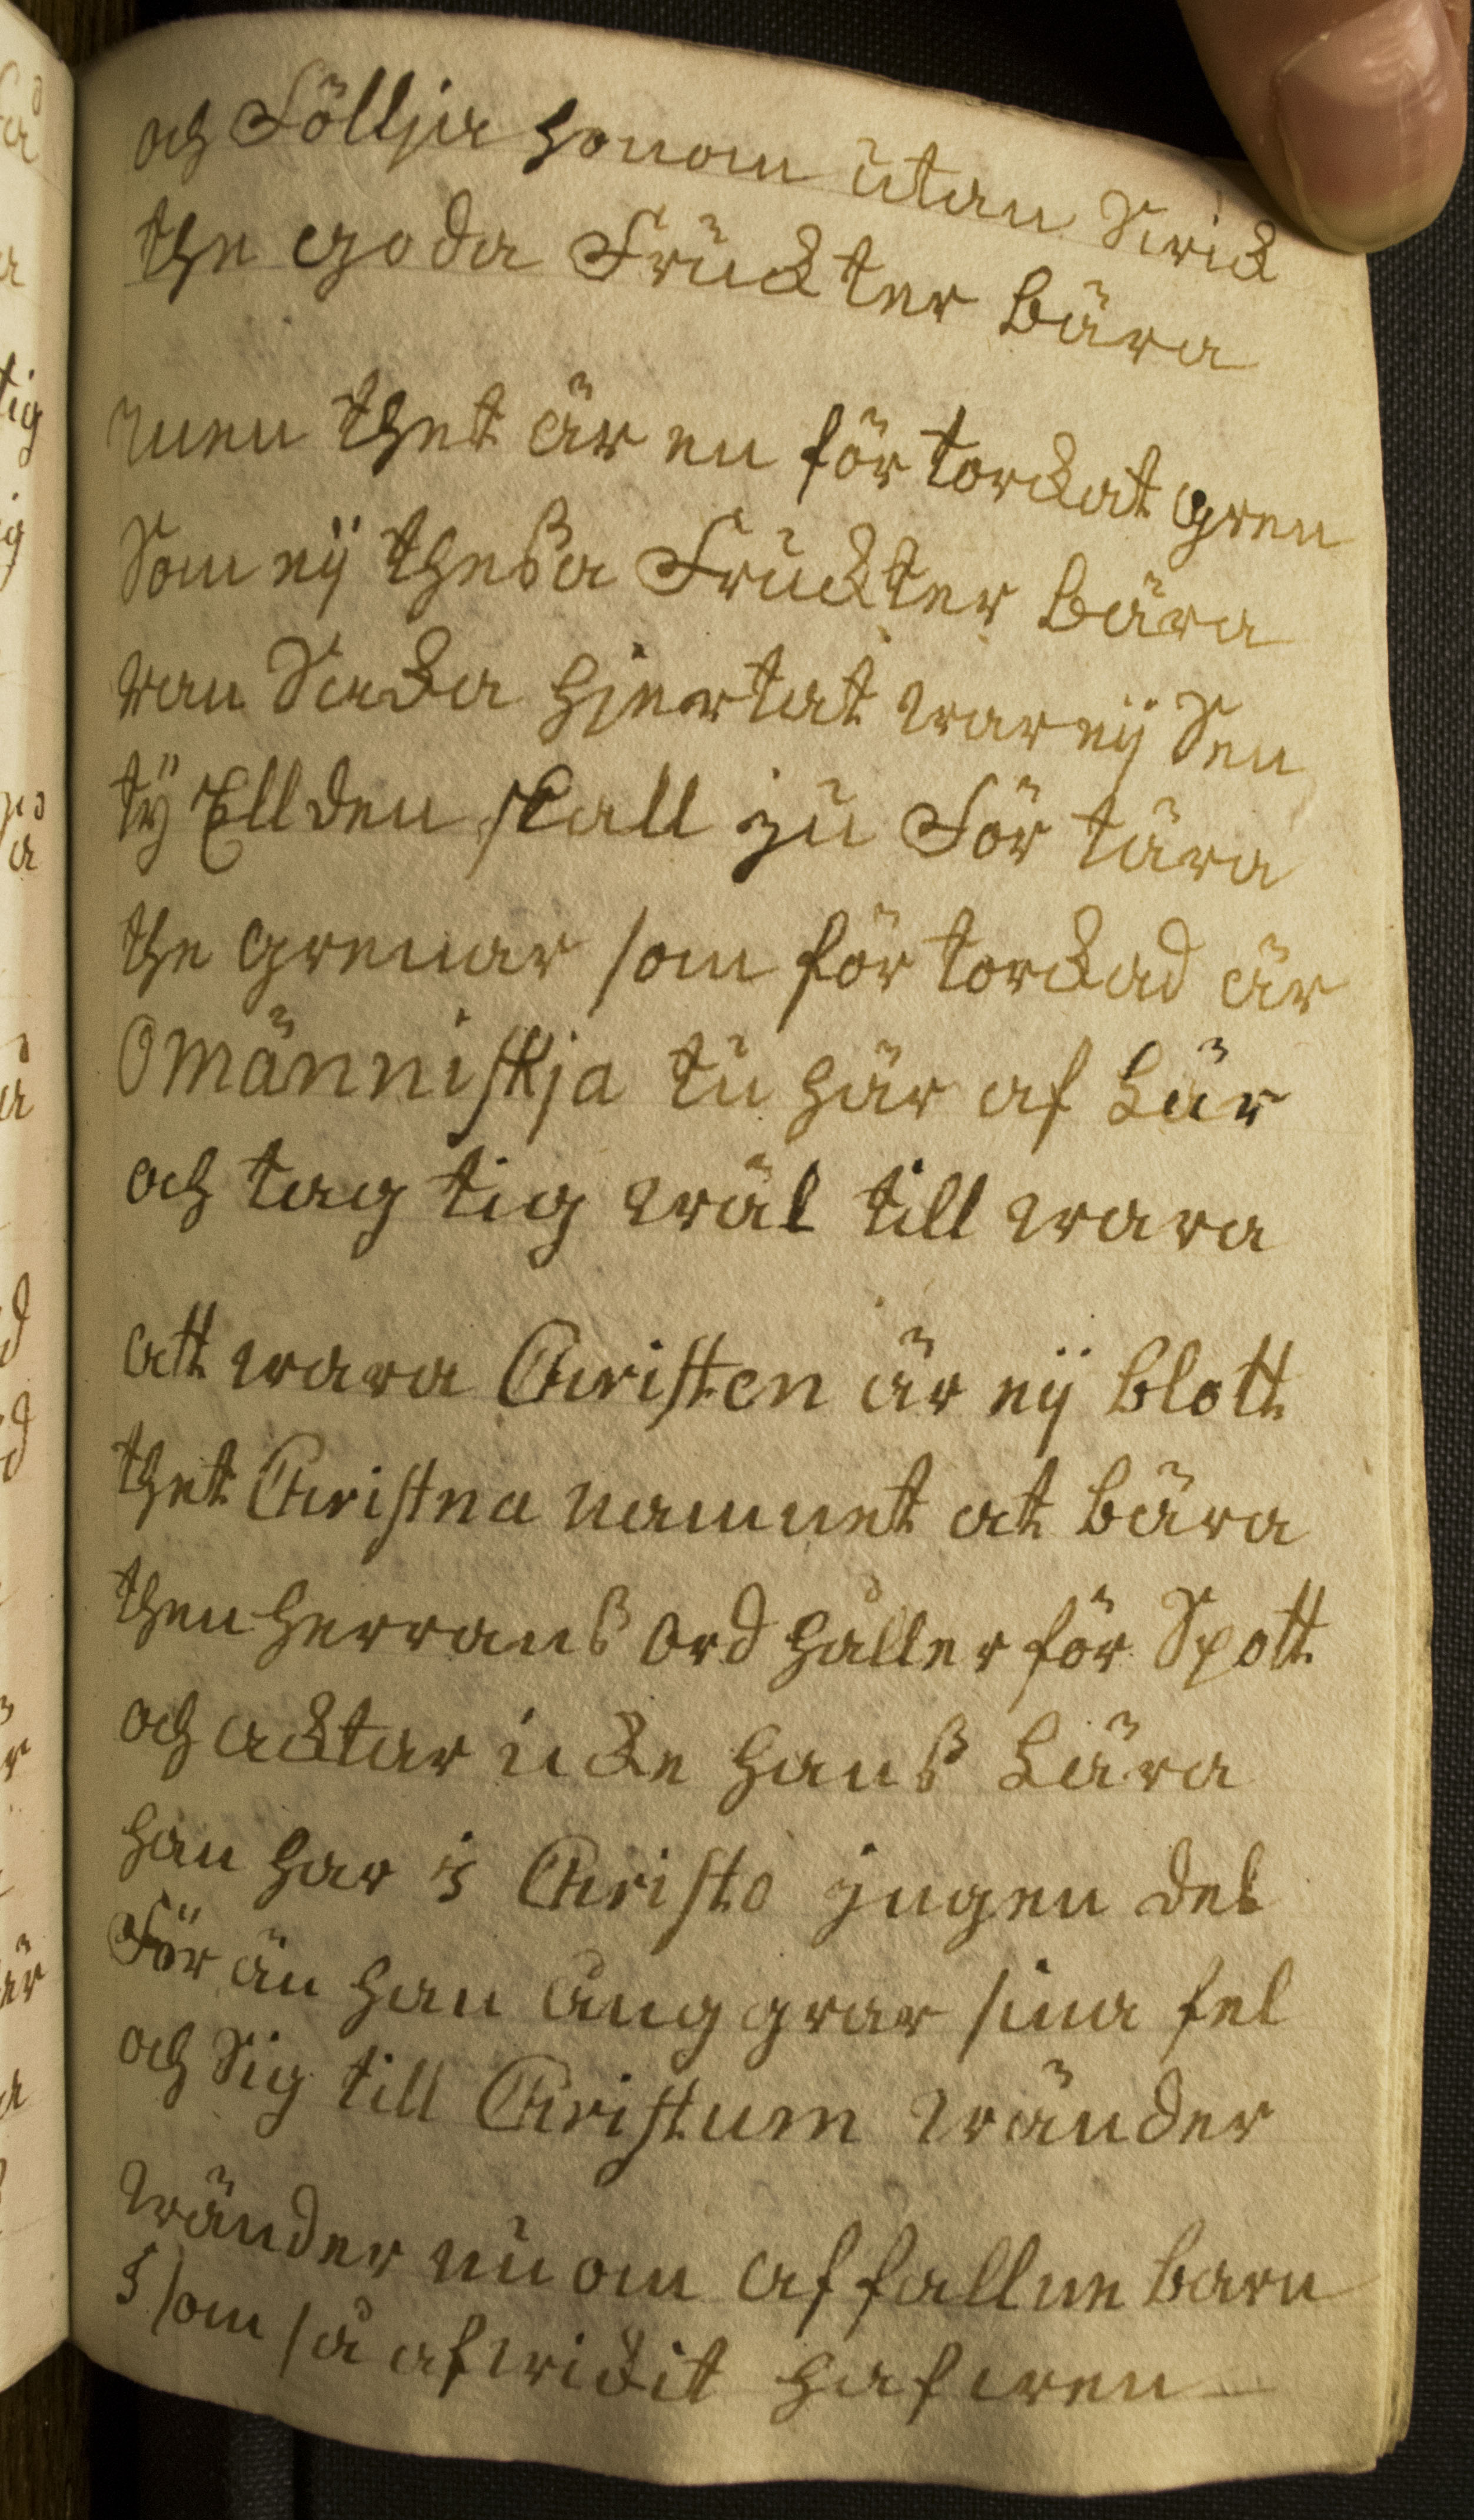 och Föllja honom utan Swick
the goda Frückter bära
men thet är en förtorckat gren
Som eÿ theßa Frückter bära
wan Sacka hjertat war eÿ Sen
tÿ Ellden skall ju Förtära
the grenar som förtorckad är
O Människja tu här af Lär
och tag tig wäl till wara
att wara Christen är eÿ blott
thet Christna namnet at bära
then herrans ord håller för Spott
och acktar icke hans Lära
han har i Christo jngen del
För än han ånggrar sina fel
och Sig till Christum wänder
wänder nu om affallne barn
j som så afwickit hafwen